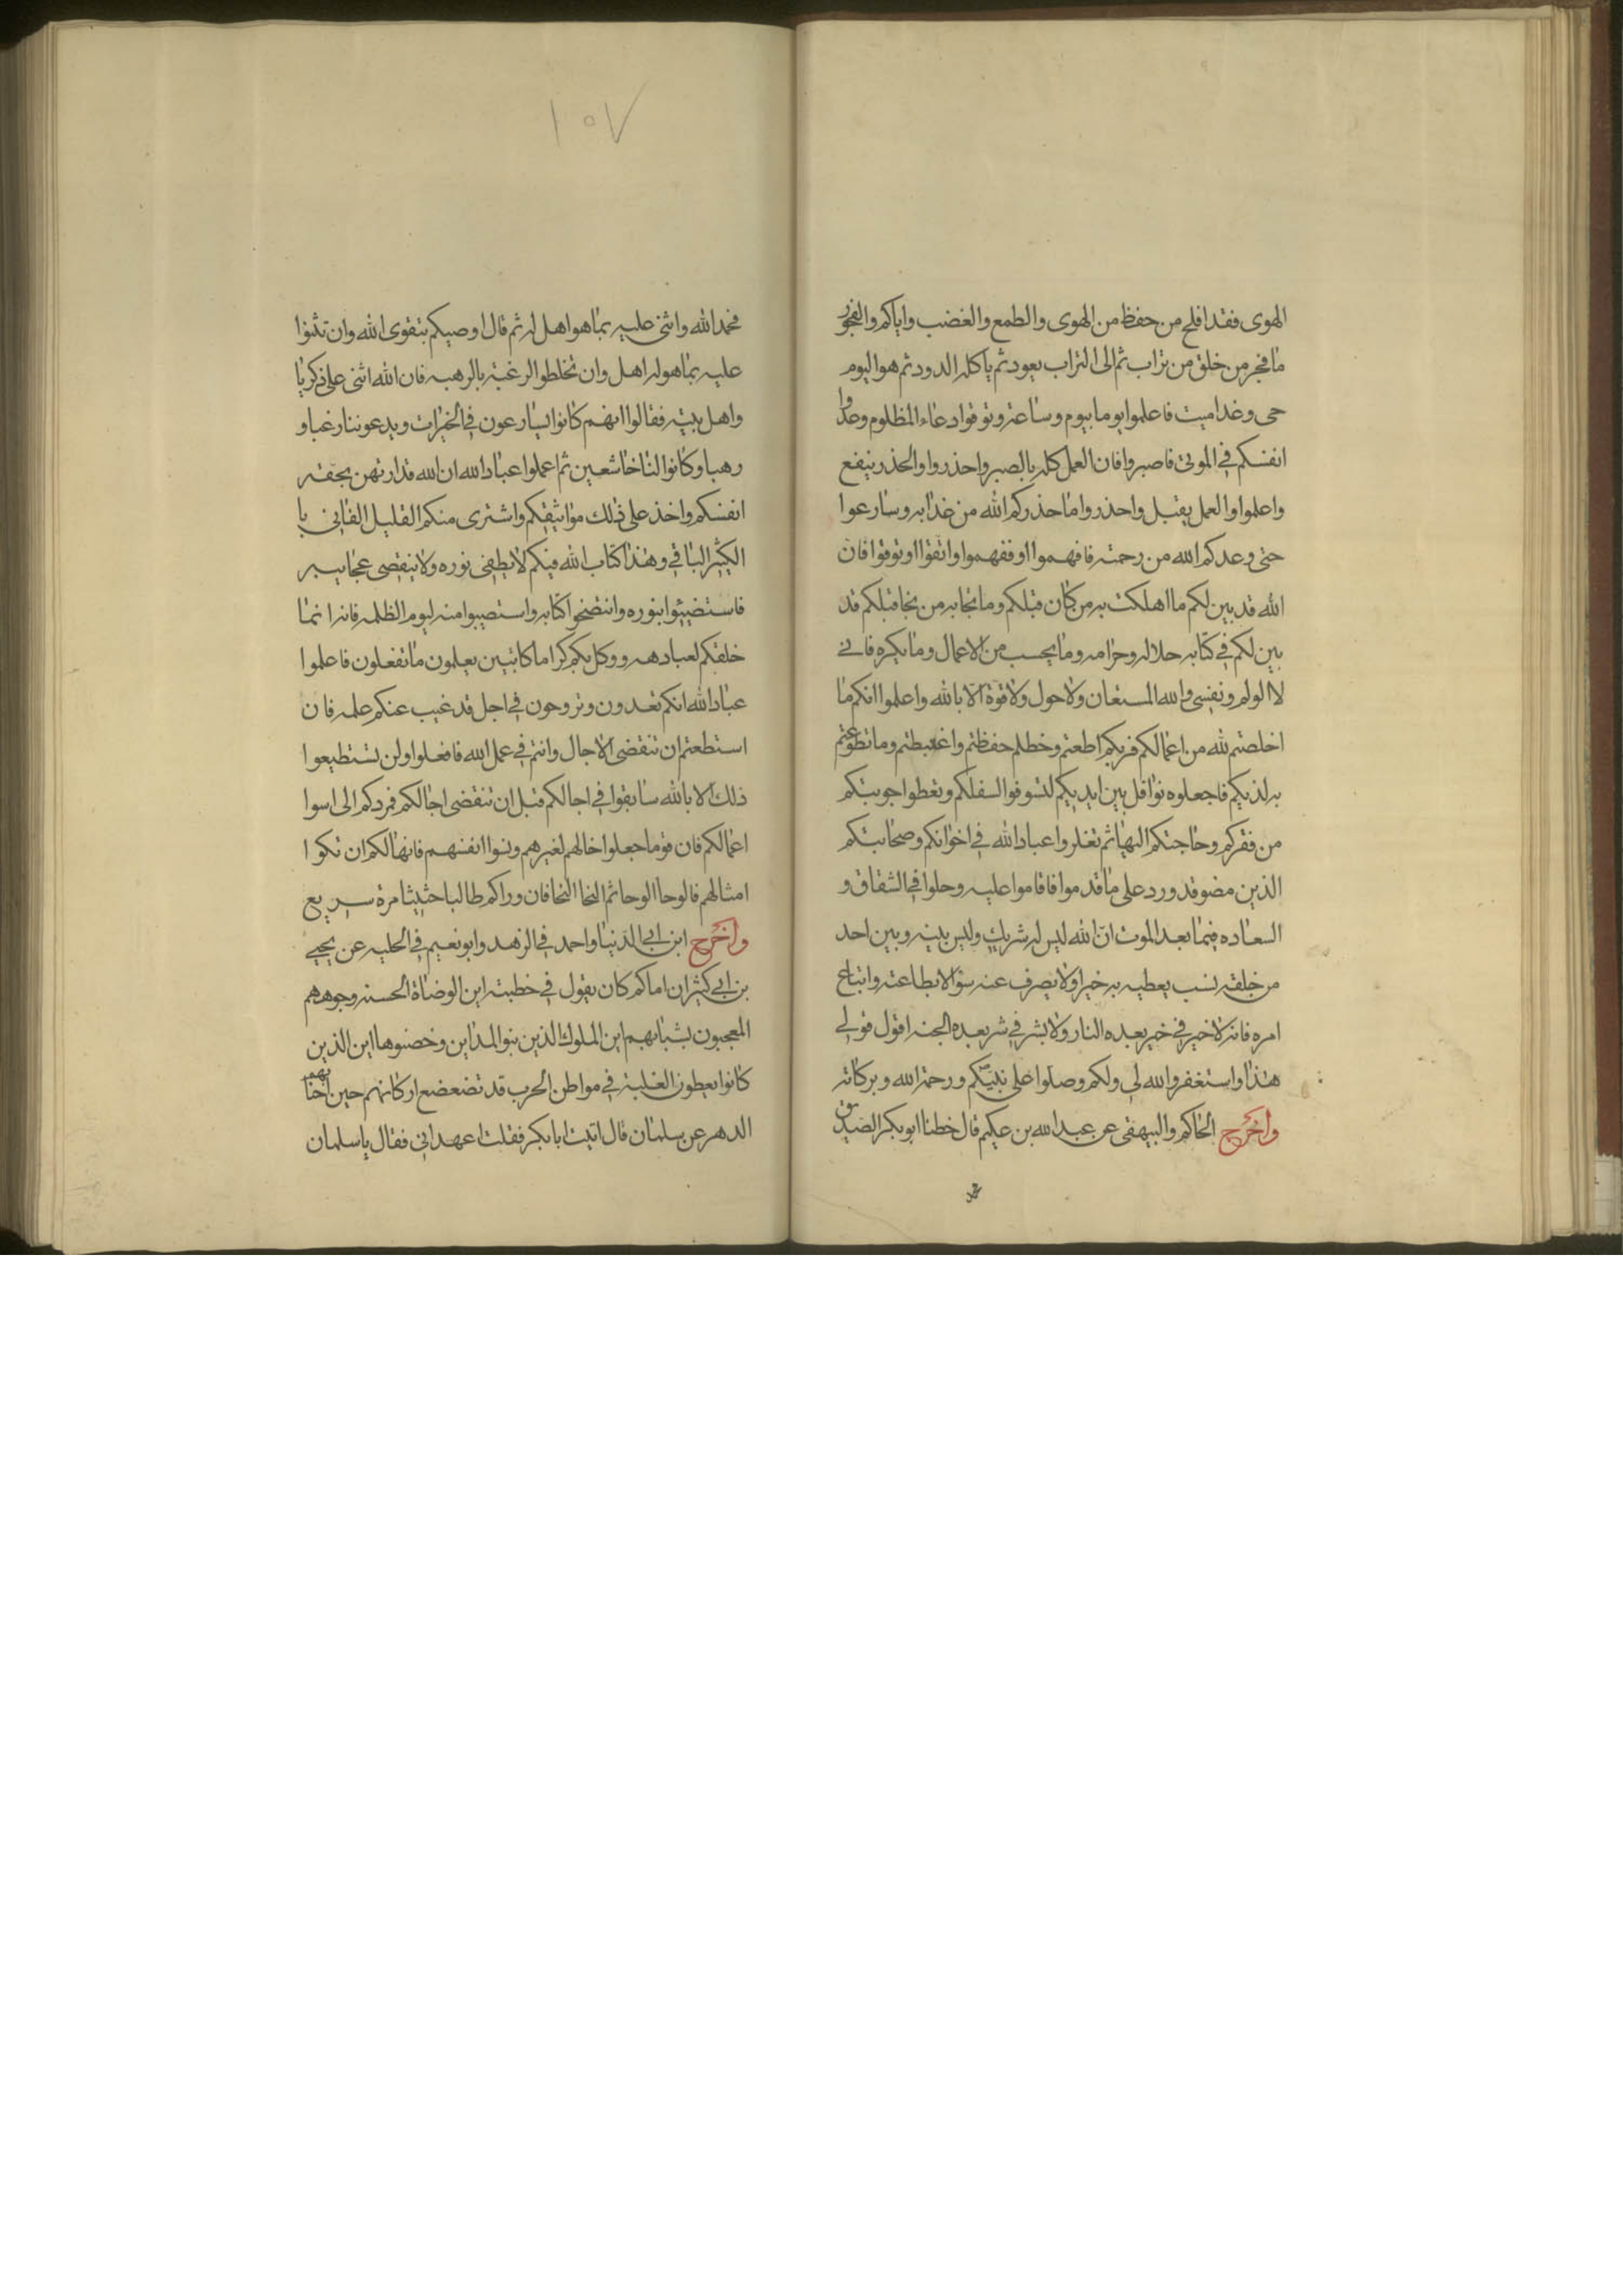 الهوى فقد افلح من حفظ من الهوى والطمع والغضب واياكم والفجور
ما فجر من خلق من تراب ثم الى التراب يعود ثم ياكله الدود ثم هو اليوم
حى وغدا ميت فاعلموا يوما بيوم وساعة وتوقوا دعاء المظلوم وعدوا
انفسكم في الموتى فاصبروا فان العمل كله بالصبر واحذروا والحذر ينفع
واعلموا والعمل يقبل واحذروا ما حذركم الله من عذابه وسارعوا
حتى وعدكم الله من رحمته فافهموا او ففهموا واتقوا او توقوا فان
الله قد بين لكم ما اهلكت به من كان قبلكم وما نجا به من نجا قبلكم قد
بين لكم في كتابه حلاله وحرامه وما يحسب من الاعمال وما يكره فانى
لا الولم ونفسى والله المستعان ولا حول ولا قوة الا بالله واعلموا انكم ما
اخلصتم لله من اعمالكم فربكم اطعتم وخطلم حفظتم واغتبطتم وما تطوعتم
به لذيكم فاجعلوه نوافل بين ايديكم لتسوفوا السفلكم وتعطوا جوبتكم
من فقركم وحاجتكم اليها ثم تغلروا عباد الله في اخوانكم وصحابتكم
الذين مضو قد ورد على ما قدموا فاقاموا عليه وحلوا في الشقاق و
السعاده فيما بعد الموت ان الله ليس له شريك وليس بينه وبين احد
من خلقه نسب يعطيه به خيرا ولا يصرف عنه سوؤا الا بطاعته واتباع
امره فانه لا خير في خير بعده النار ولا بشر في شر بعده الجنه اقول قولى
هذا واستغفروا الله لى ولكم وصلوا على نبيكم ورحمة الله وبركاته
واخرج الحاكم والبيهقى عن عبد الله بن عكيم قال خطنا ابو بكر الصديق
١٠٧
فحمد الله واثنى عليه بما هو اهل له ثم قال اوصيكم بتقوى الله وان تثنوا
عليه بما هو له اهل وان تخلطو الرغبة بالرهبه فان الله اثنى على ذكريا
واهل بيته فقالوا انهم كانوا يسارعون في الخيرات ويدعوننا رغبا و
رهبا وكانوا لنا خاشعين ثم اعملوا عباد الله ان الله قد ارتهن بحقه
انفسكم واخذ على ذلك مواثيقكم واشترى منكم القليل الفانى با
الكثير الباقي وهذا كتاب الله فيكم لا يطفى نوره ولا ينقصى عجايبه
فاستضيئوا بنوره وانتصحوا كتابه واستصيبوا منه ليوم الظلمه فانه انما
خلقكم لعباده ووكل بكم كراما كاتبين يعلمون ما تفعلون فاعلموا
عباد الله انكم تغدون وتروحون في اجل قد غيب عنكم علمه فان
استطعتم ان تنقضى الاجال وانتم في عمل الله فافعلوا ولن تستطيعوا
ذلك الا بالله سابقوا في اجالكم قبل ان تنقضى اجالكم فردكم الى اسوا
اعمالكم فان قوما جعلوا اخالهم لغيرهم ونسوا انفسهم فانهالكم ان تكوا
امثالهم فالوحا الوحا ثم النحا النحا فان وراكم طالبا حثيثا مرة سريع
واخرج ابن ابى الدنيا واحمد في الزهد وابو نعيم في الحليه عن يحيى
بن ابى كثير ان اماكم كان يقول في خطبته اين الوضاة الحسنه وجوههم
المعجبون بشبابهم اين الملوك الذين بنوا المداين وخصنوها اين الذين
كانوا يعطون الغلبة في مواطن الحرب قد تضعضع اركانهم حين اخنا بهم
الدهر عن سلمان قال اتيت ابا بكر فقلت اعهد انى فقال يا سلمان